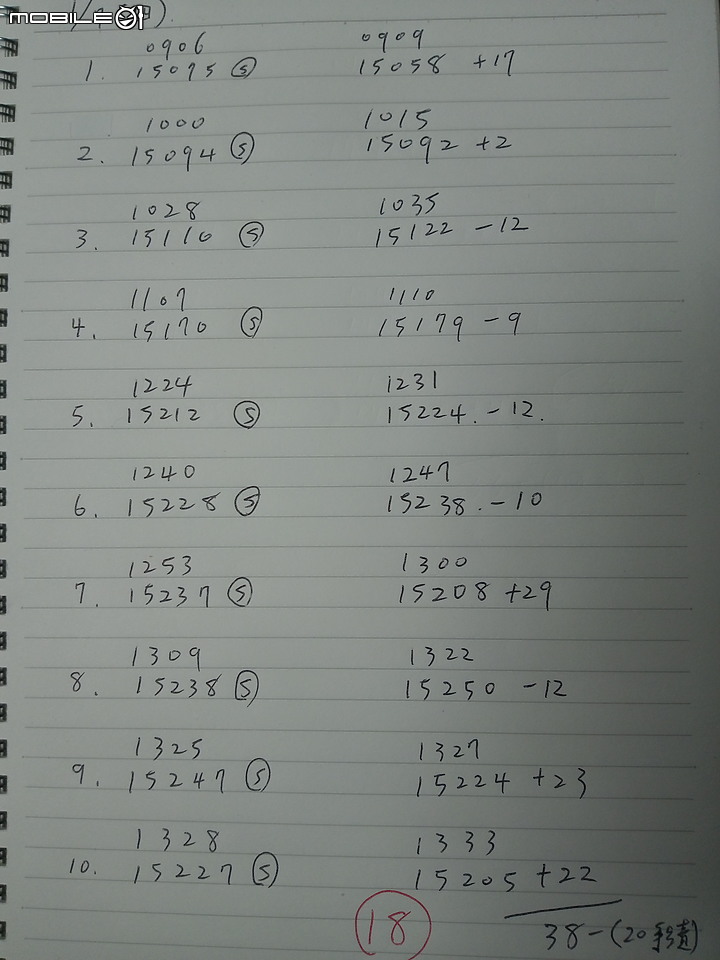 MOBILE01
0906 0909
1. 15075 Ⓢ 15058 +17
1000 1015
2. 15094 Ⓢ 15092 +2
1028 1035
3. 15110 Ⓢ 15122 -12
1107 1110
4. 15170 Ⓢ 15179 -9
1224 1231
5. 15212 Ⓢ 15224. -12.
1240 1247
6. 15228 Ⓢ 15238. -10
1253 1300
7. 15237 Ⓢ 15208 +29
1309 1322
8. 15238 Ⓢ 15250 -12
1325 1327
9. 15247 Ⓢ 15224 +23
1328 1333
10. 15227 Ⓢ 15205 +22
18 38-(20手續費)